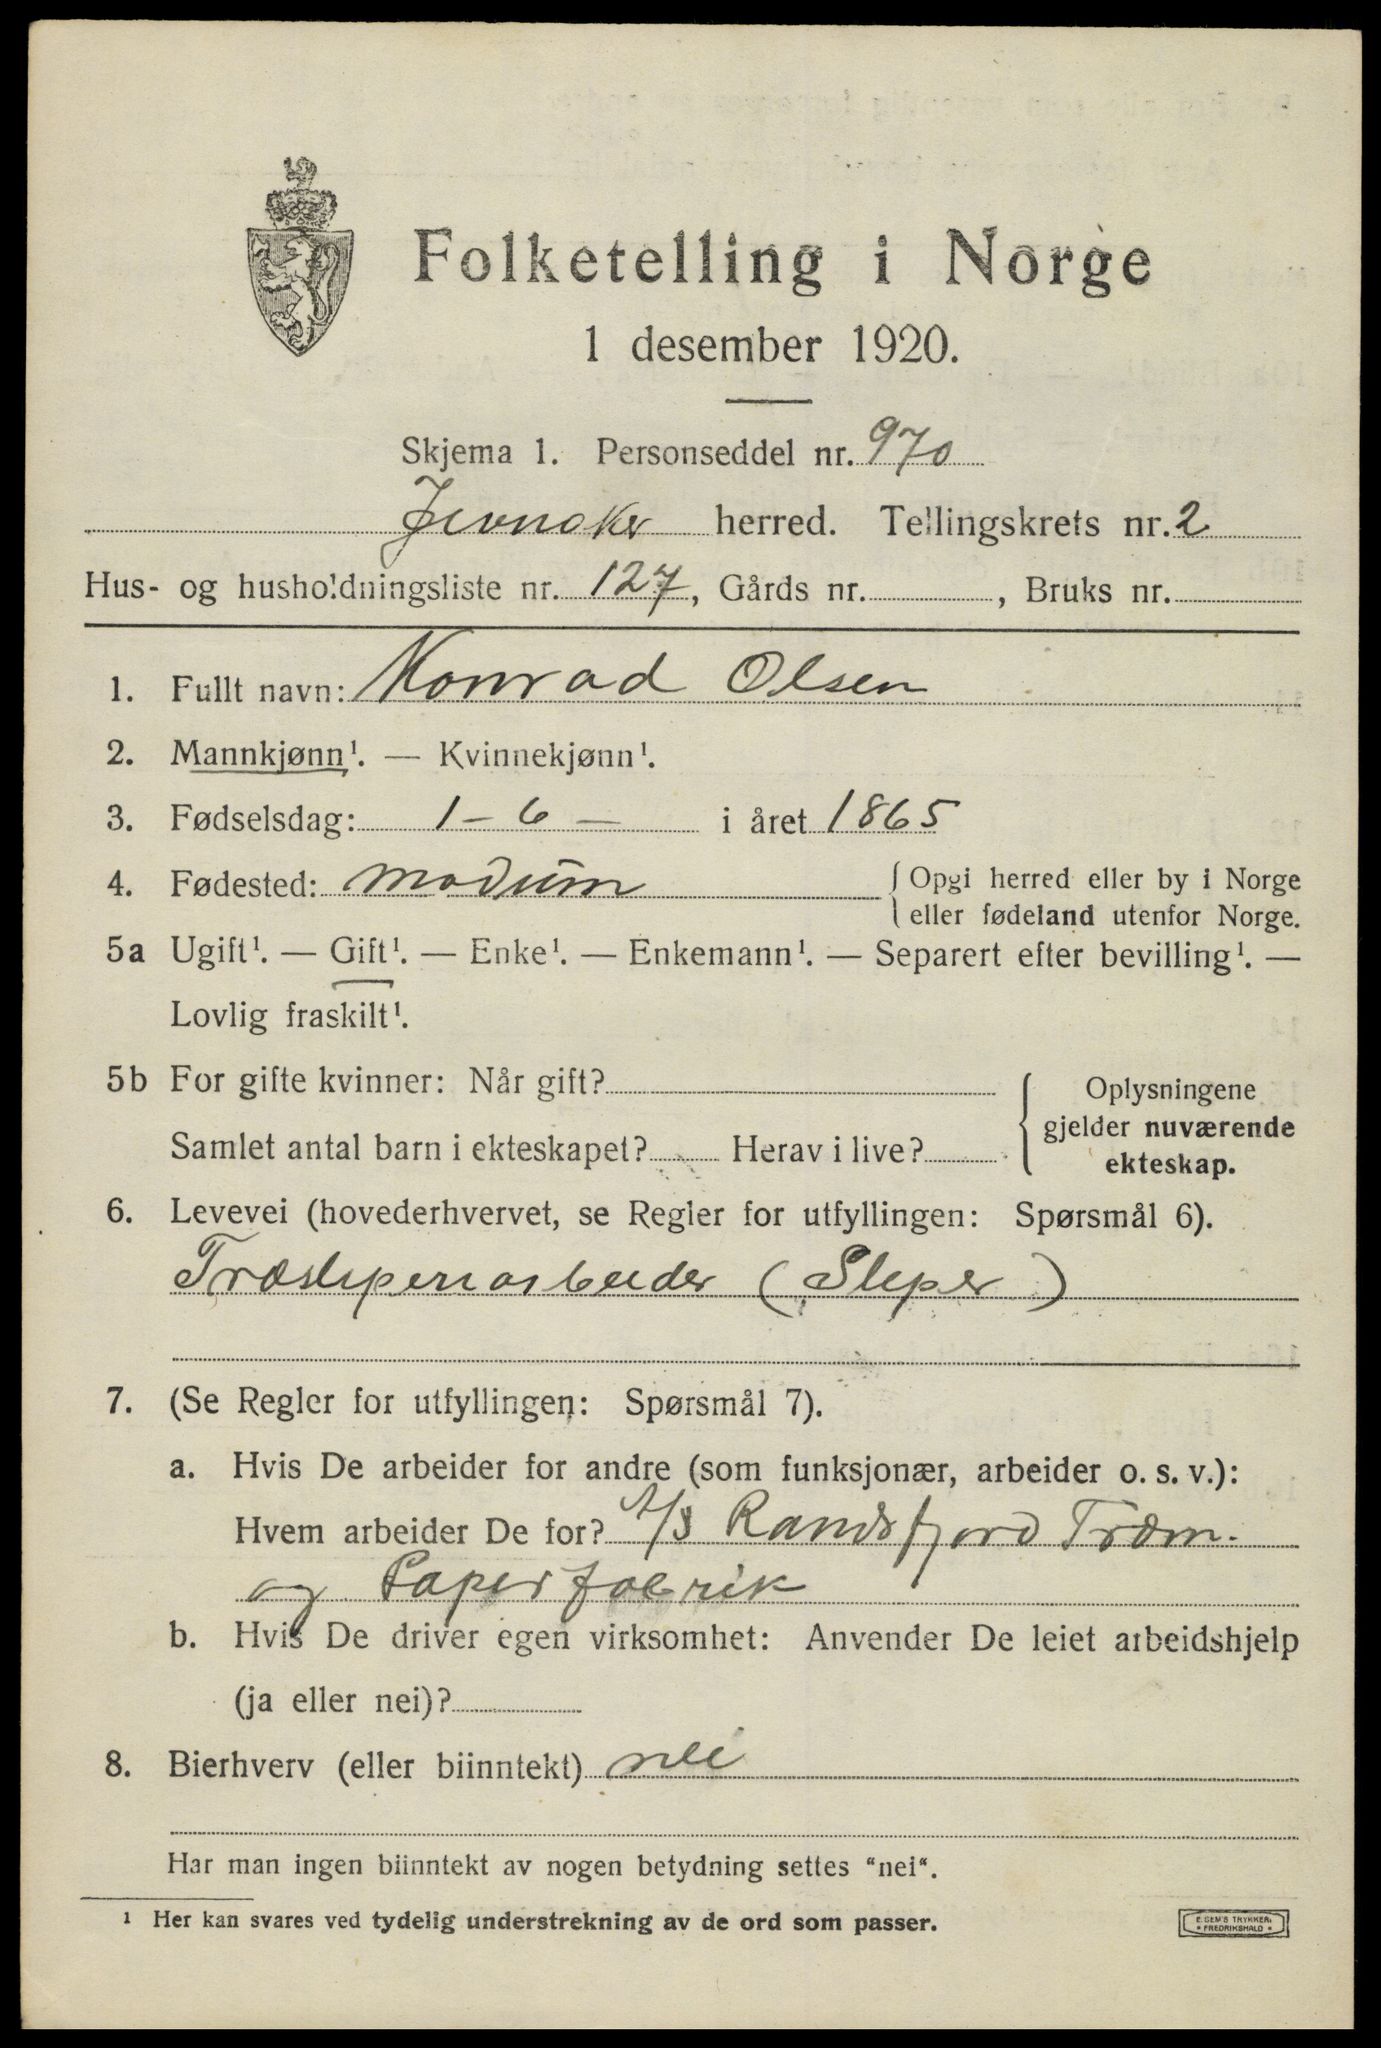 Folketelling i Norge
1 desember 1920.
Skjema 1. Personseddel nr. 970
Jevnaker herred. Tellingskrets nr. 2
Hus- og husholdningsliste nr. 127, Gårds nr. , Bruks nr.
1. Fullt navn: Konrad Olsen
2. Mannkjønn¹. — Kvinnekjønn¹.
3. Fødselsdag: 1-6- i året 1865
4. Fødested: Modum {Opgi herred eller by i Norge
eller fødeland utenfor Norge.
5a Ugift¹. — Gift¹. — Enke¹. — Enkemann¹. — Separert efter bevilling¹. —
Lovlig fraskilt¹.
5b For gifte kvinner: Når gift?
Samlet antal barn i ekteskapet? Herav i live?
{Oplysningene
gjelder nuværende
ekteskap.
6. Levevei (hovederhvervet, se Regler for utfyllingen: Spørsmål 6).
Træsliperiarbeider (Sliper)
7. (Se Regler for utfyllingen: Spørsmål 7).
a. Hvis De arbeider for andre (som funksjonær, arbeider o. s. v.):
Hvem arbeider De for? A/S Randsfjord Træm.
og Papirfabrik
b. Hvis De driver egen virksomhet: Anvender De leiet arbeidshjelp
(ja eller nei)?
8. Bierhverv (eller biinntekt) nei
Har man ingen biinntekt av nogen betydning settes "nei".
¹ Her kan svares ved tydelig understrekning av de ord som passer.
E. SEM'S TRYKKERI
* FREDRIKSHALD *